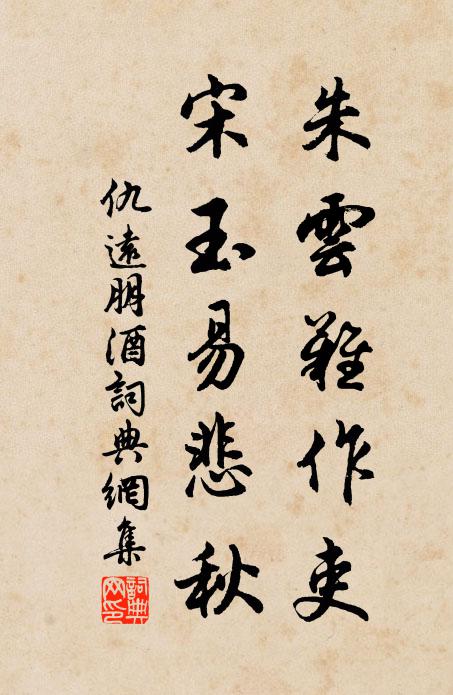 朱雲難作吏
宋玉易悲秋
仇遠朋酒詞典網集
詞典網印